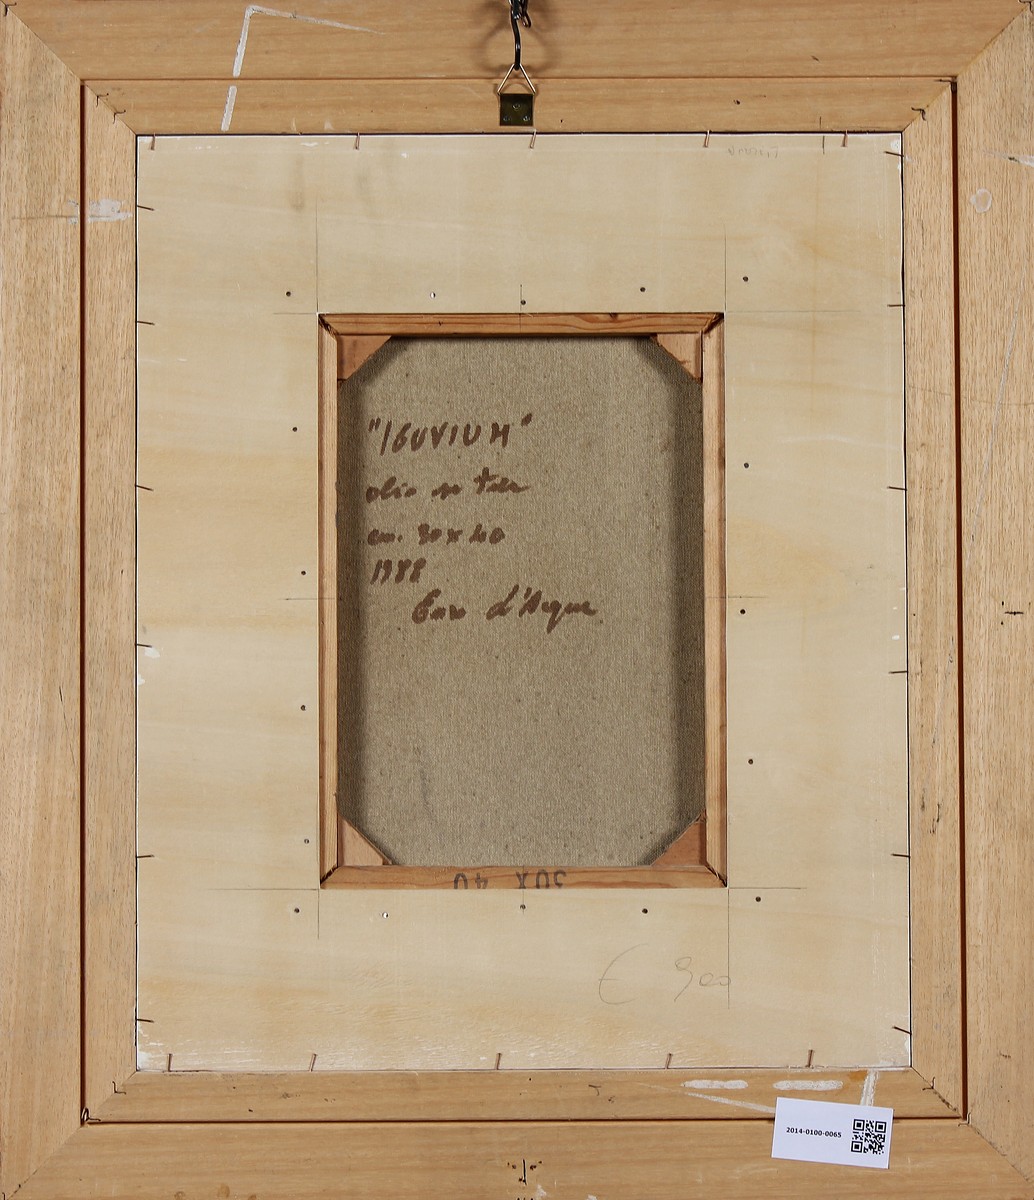 "IGUVIUM"
olio su tela
cm. 30 x 40
1988
d'Acqua
30X 40
€ 900
2014-0100-0065